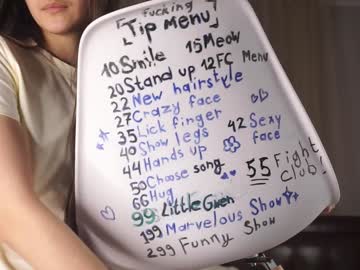 Fucking
[Tip Menu]
10 Smile 15 Meow
20 Stand up 12 FC Menu
22 New hairstyle
27 Crazy face
35 Lick finger
40 Show legs 42 Sexy face
44 Hands up
50 Choose song 55 Fight Club!
66 Hug
99 Little Green
199 Marvelous Show
299 Funny Show